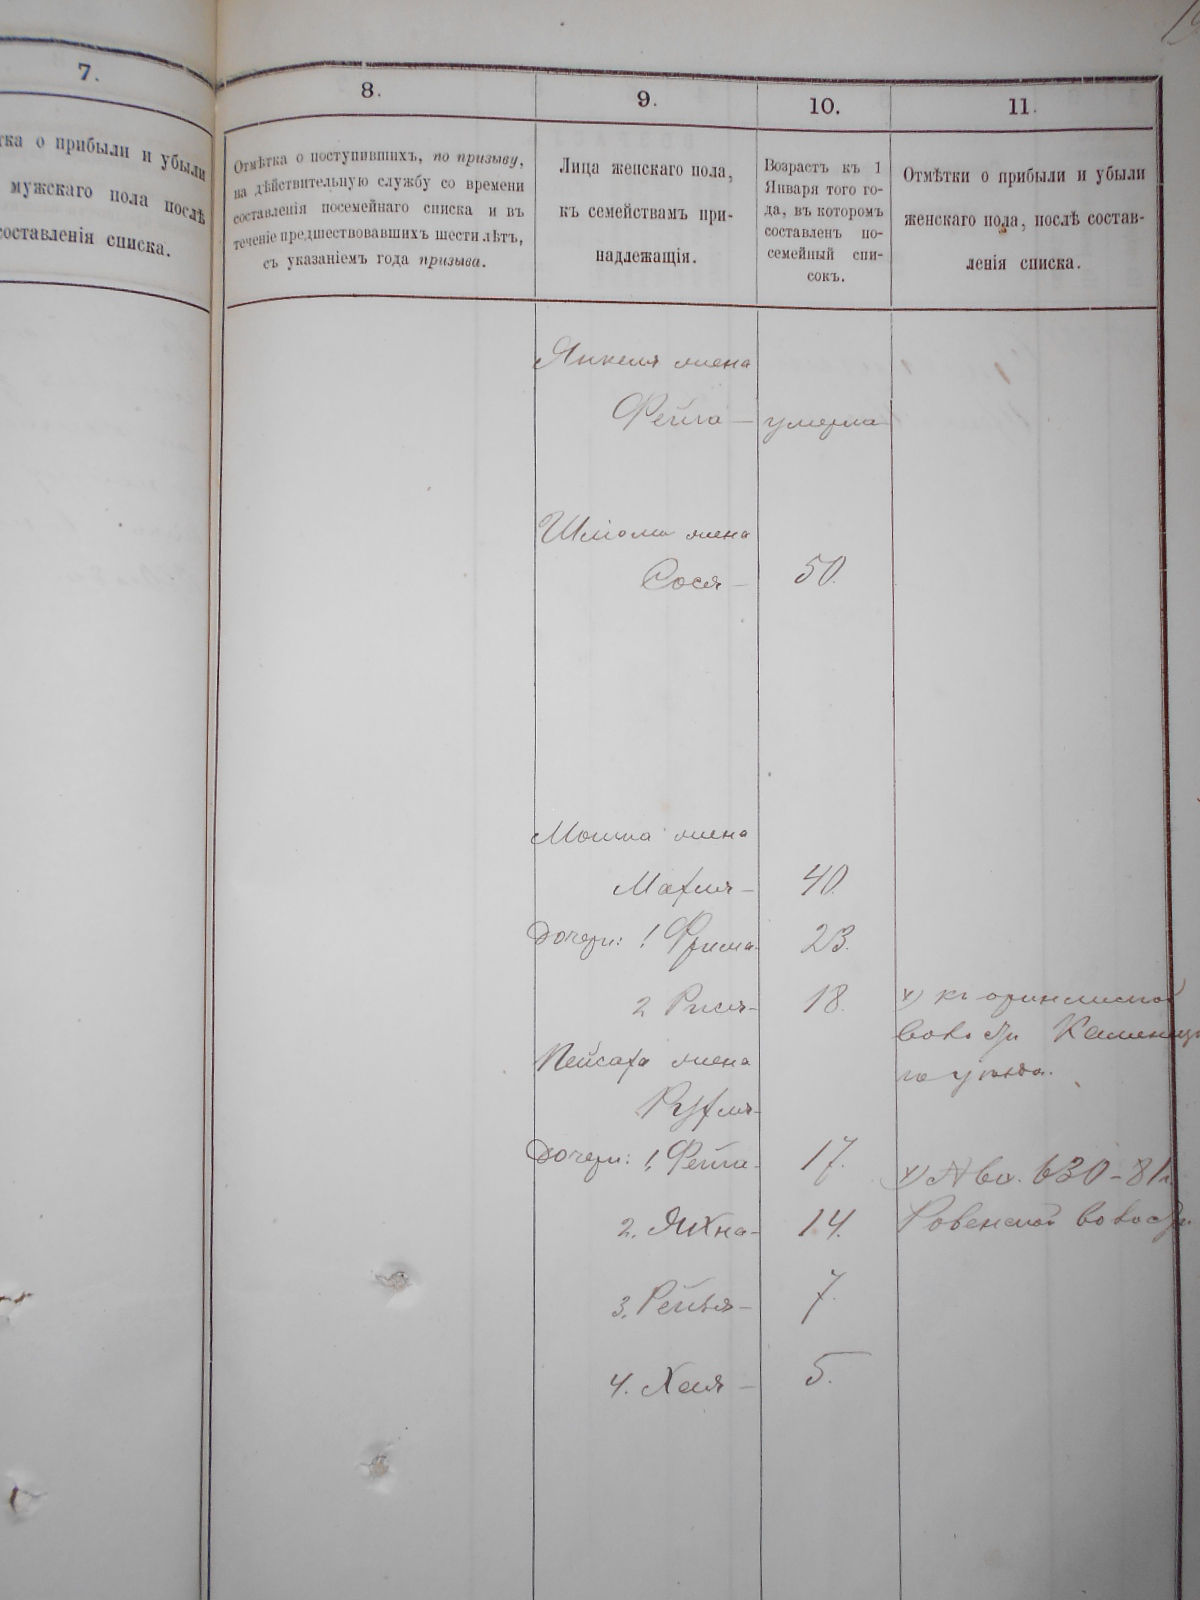 7.
тка о прибыли и убыли
мужскаго пола послѣ
составленія списка.
8.
Отмѣтка о поступившихъ, по призыву,
на дѣйствительную службу со времени
составленія посемейнаго списка и въ
теченіе предшествовавшихъ шести лѣтъ,
съ указаніемъ года призыва.
9.
Лица женскаго пола,
къ семействамъ при-
надлежащія.
10.
Возрастъ къ 1
Января того го-
да, въ которомъ
составленъ по-
семейный спи-
сокъ.
11.
Отмѣтки о прибыли и убыли
женскаго пола, послѣ состав-
ленія списка.
Янкеля жена
Фейга — умерла
Шліомы жена
Сося — 50.
Мошка жена
Махля — 40.
Дочери: 1 Фрима 23.
2 Рися — 18.
х) къ
Каменец
го уѣзда.
Пейсаха жена
Рухля —
Дочери: 1. Фейга 17.
х) № вх. 630 – 81 г.
2. Яхна — 14.
Ровенской
3. Рейзя — 7.
4. Хая — 5.